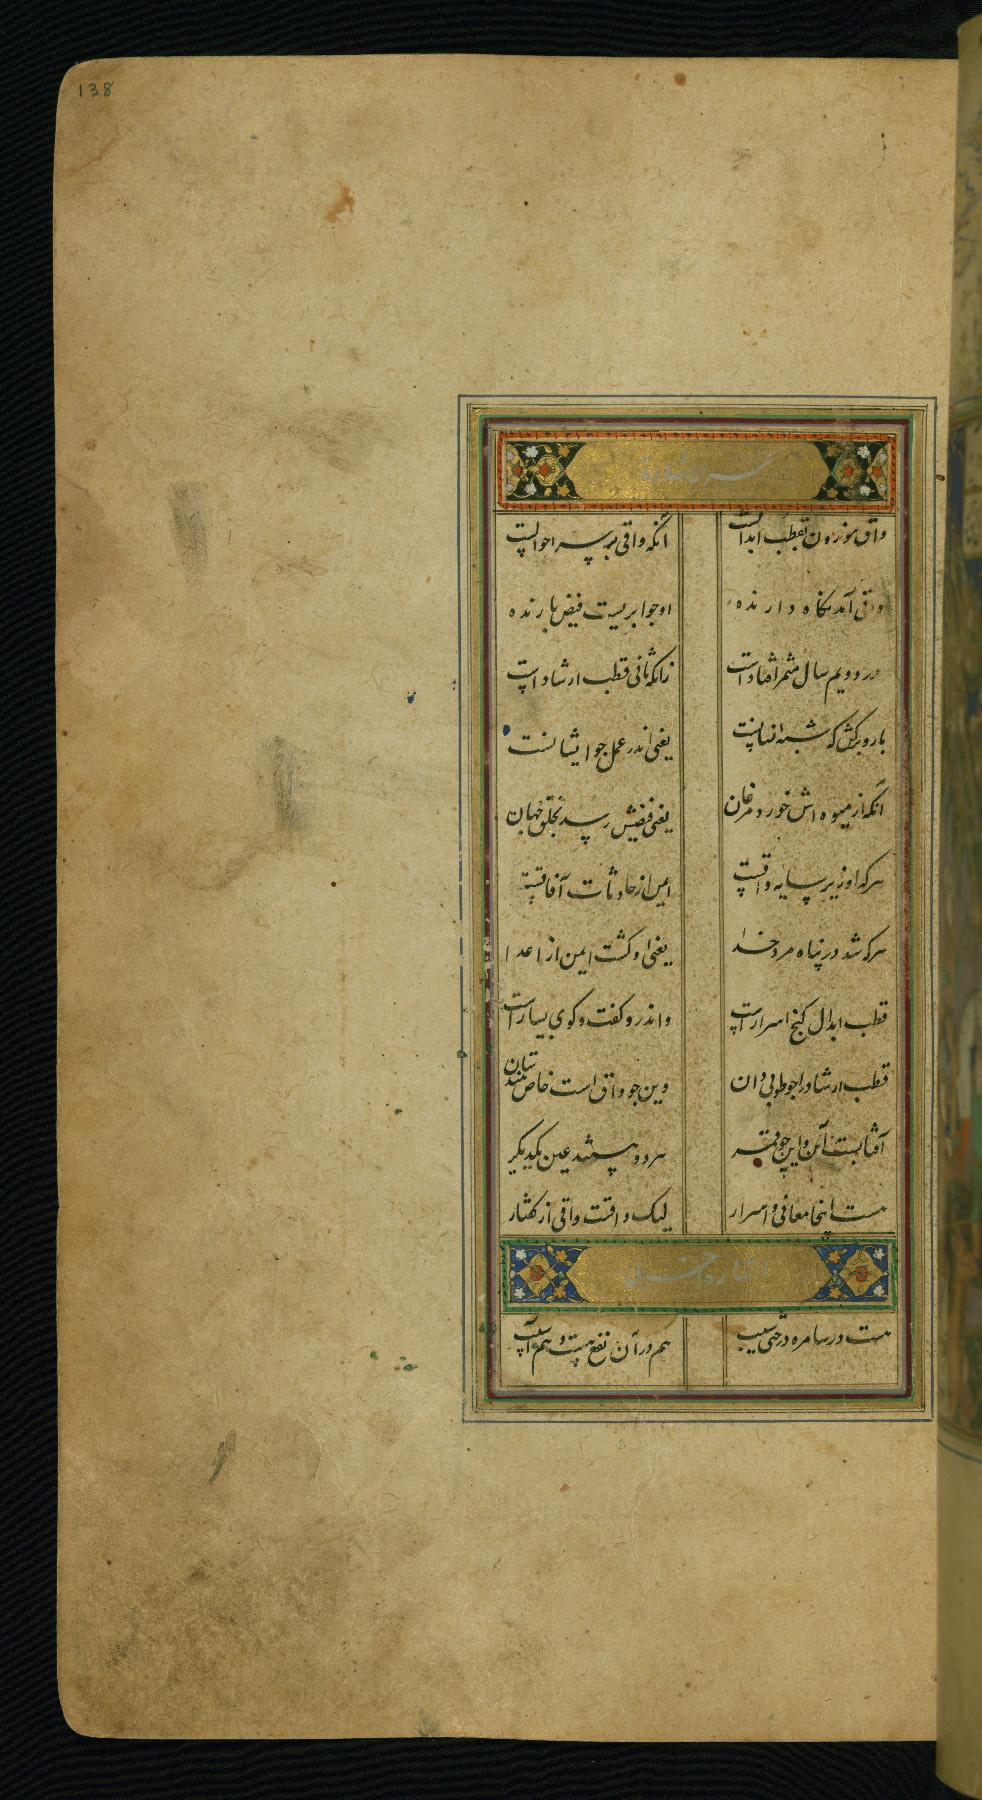 138
واق موزون بقطب ابدالست آنکه واقی بهر سر احوالست
واقی آمد نگاه دارنده او چو ابریست فیض بارنده
در دویم سال مثمر افتادست زانکه ثانی قطب ارشادست
بارورکش که شبه انسانست یعنی اندر عمل چو ایشانست
آنکه از میوه اش خورد مرغان یعنی فیضش رسد بخلق جهان
هرکه او زیر سایه واقست ایمن از حادثات آفاقست
هرکه شد در پناه مرد خدا یعنی او گشت ایمن از اعدا
قطب ابدال گنج اسرارست واندرو گفت و کوی بسیارست
قطب ارشاد را چو طوبی دان وین چو واق است خاص بستان
آفتابست آن و این چو قمر هر دو هستند عین یکدیگر
هست اینجا معانی و اسرار لیک واقست واقی از گفتار
اشاره اخری
هست در سامره درختی سیب هم در آن نفع هست و هم آسیب